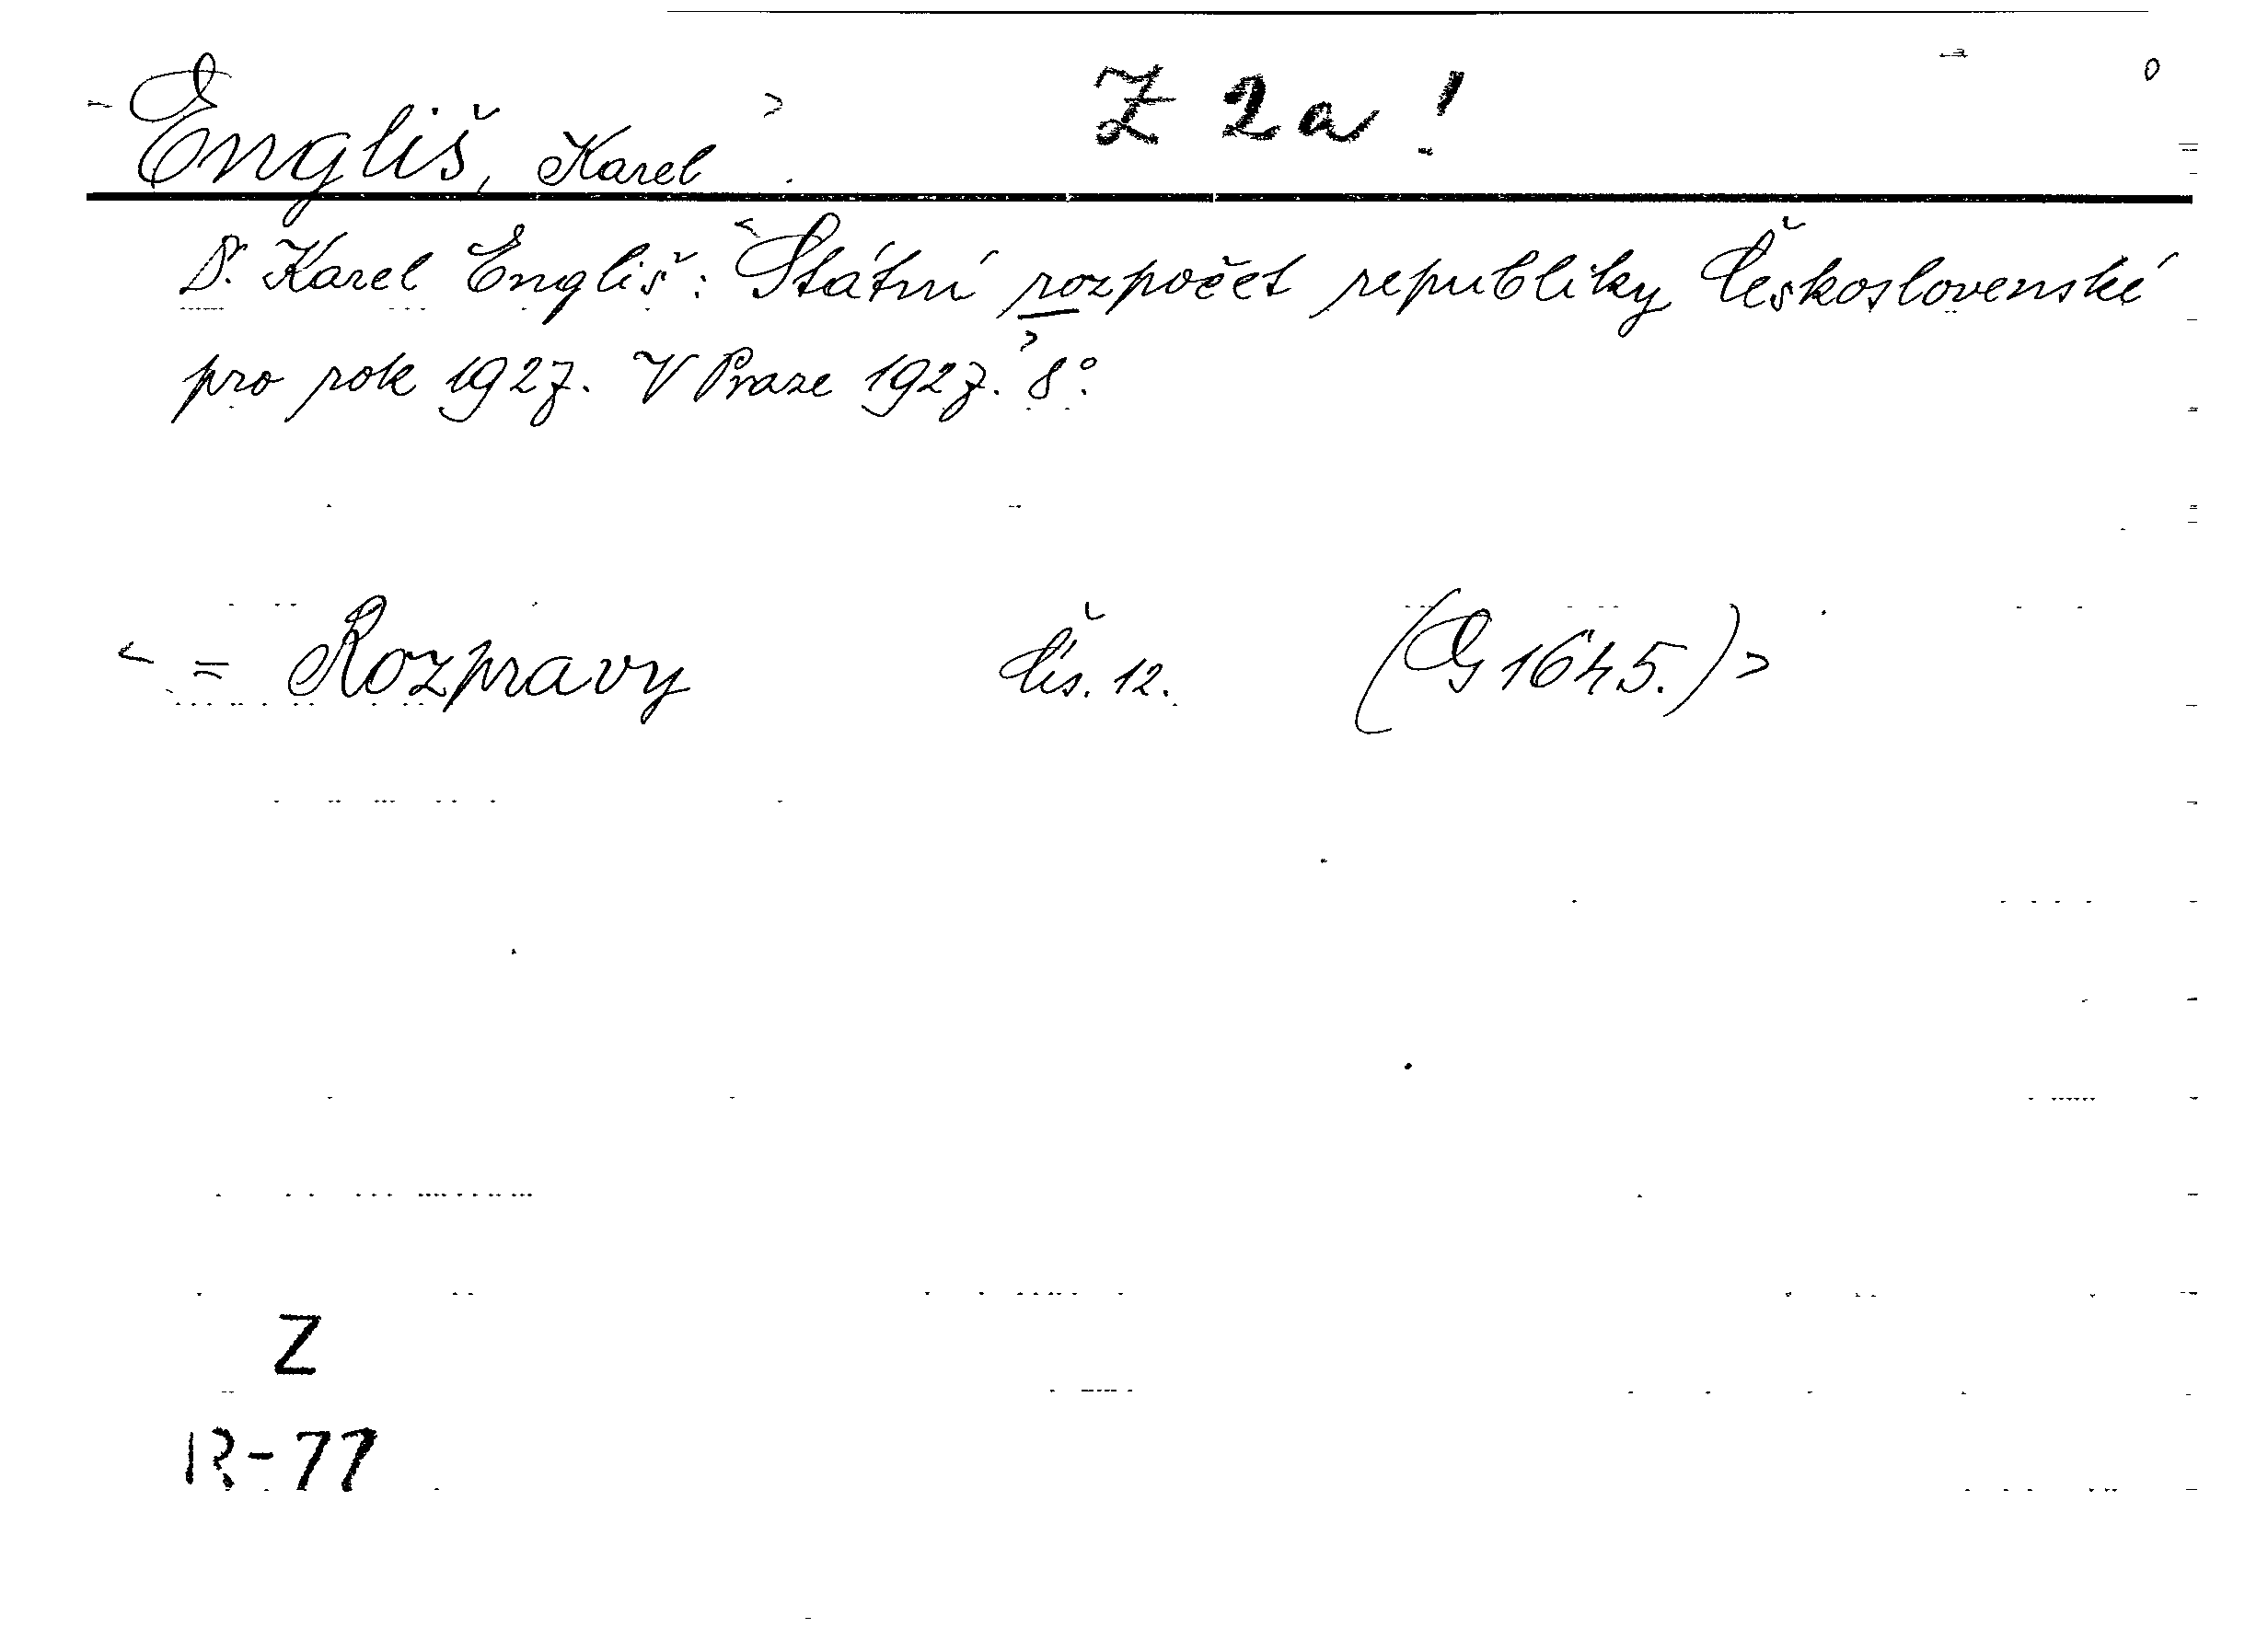 Engliš, Karel Z 2a!
D. Karel Engliš: Státní rozpočet republiky Československé
pro rok 1927. V Praze 1927. 8°.
= Rozpravy Čís. 12. (G 1645.)
Z
R-77